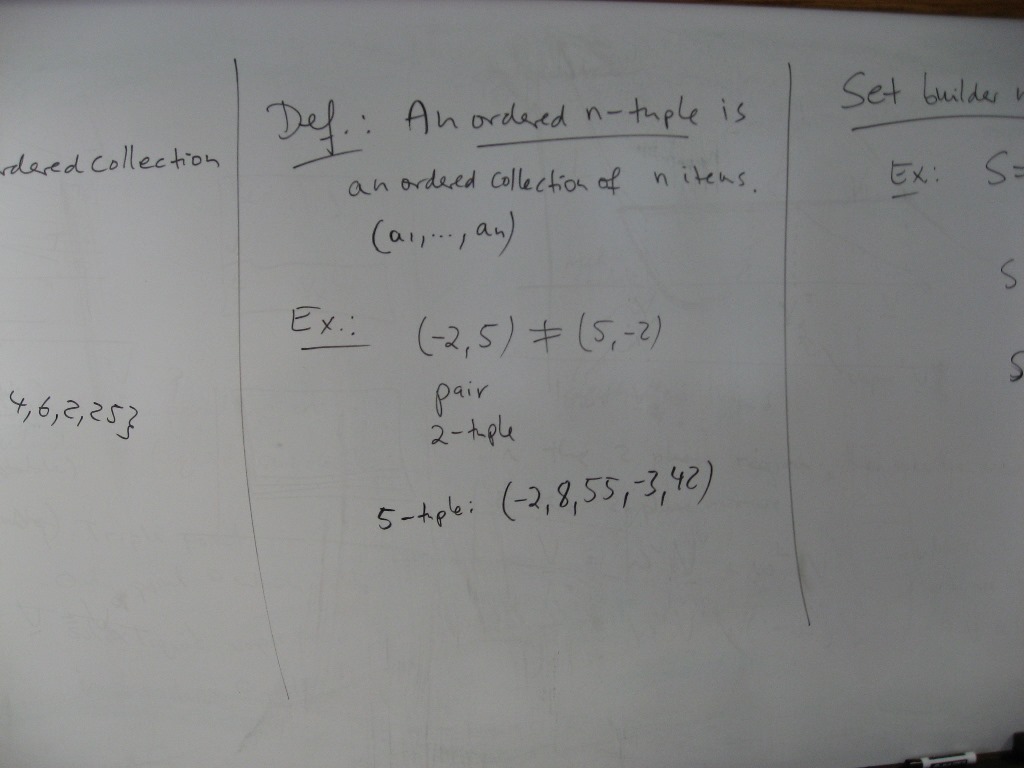 rdered collection
4,6,2,25}
Def.: An ordered n-tuple is
an ordered collection of n items.
(a1,...,an)
Ex.: (-2,5) ≠ (5,-2)
pair
2-tuple
5-tuple: (-2,8,55,-3,42)
Set builder n
Ex: S=
S
S